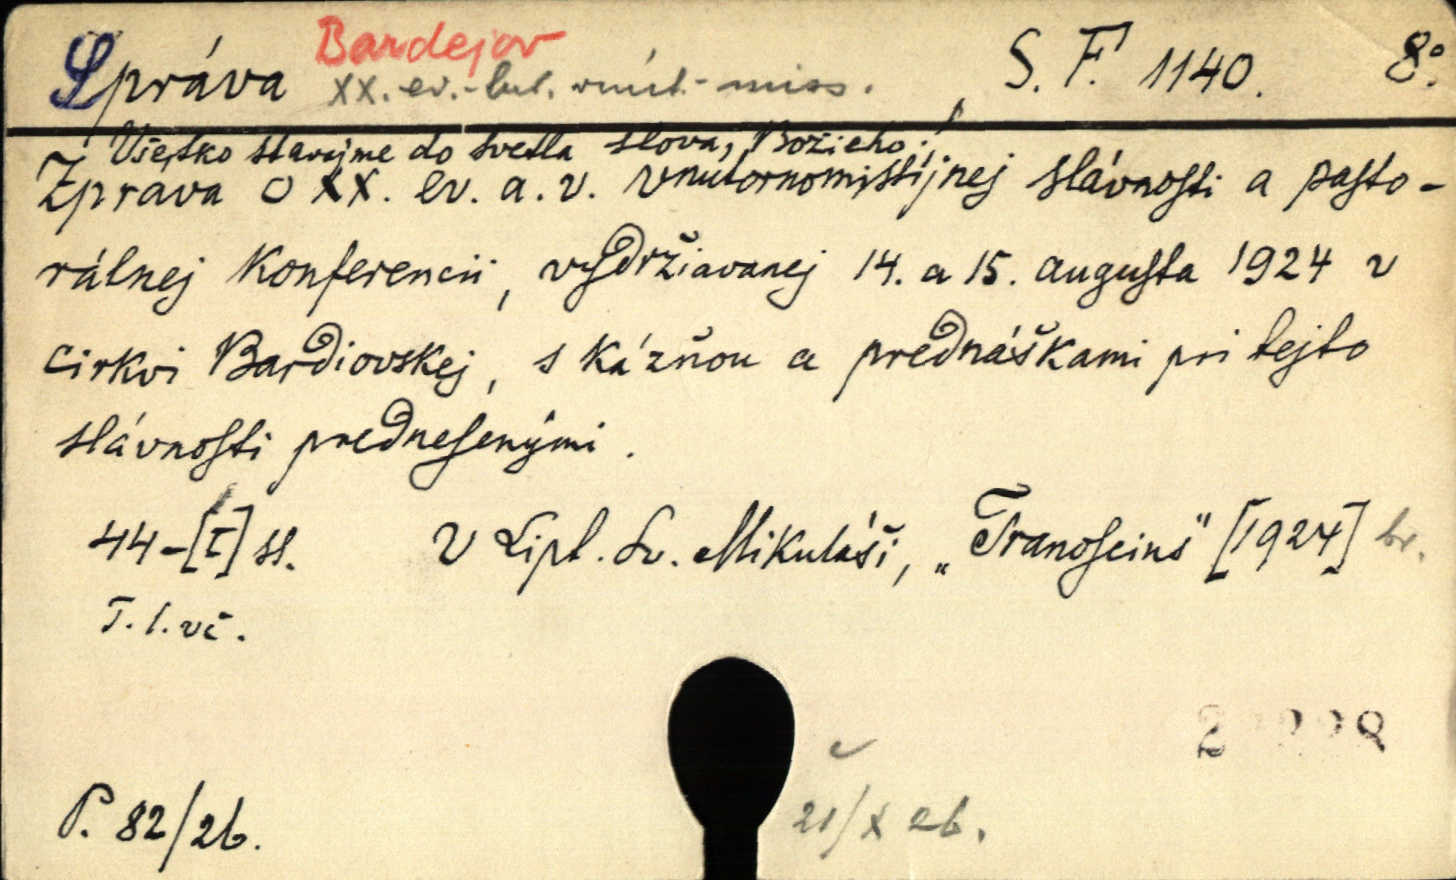 Bardejov
Správa XX. ev.-lut. vnút.-miss. S. F. 1140. 8°.
Všetko stavajme do svetla slova Božieho!
Zpráva o XX. ev. a. v. vnútornomissijnej slávnosti a pasto-
rálnej konferencii, vydržiavanej 14. a 15. augusta 1924 v
cirkvi Bardiovskej, s kázňou a prednáškami pri tejto
slávnosti prednesenými.
44-[I] ss. V Lipt. Sv. Mikuláši, „Tranoscius" [1924] br.
T. l. vč.
P. 82/26.
21/X 26.